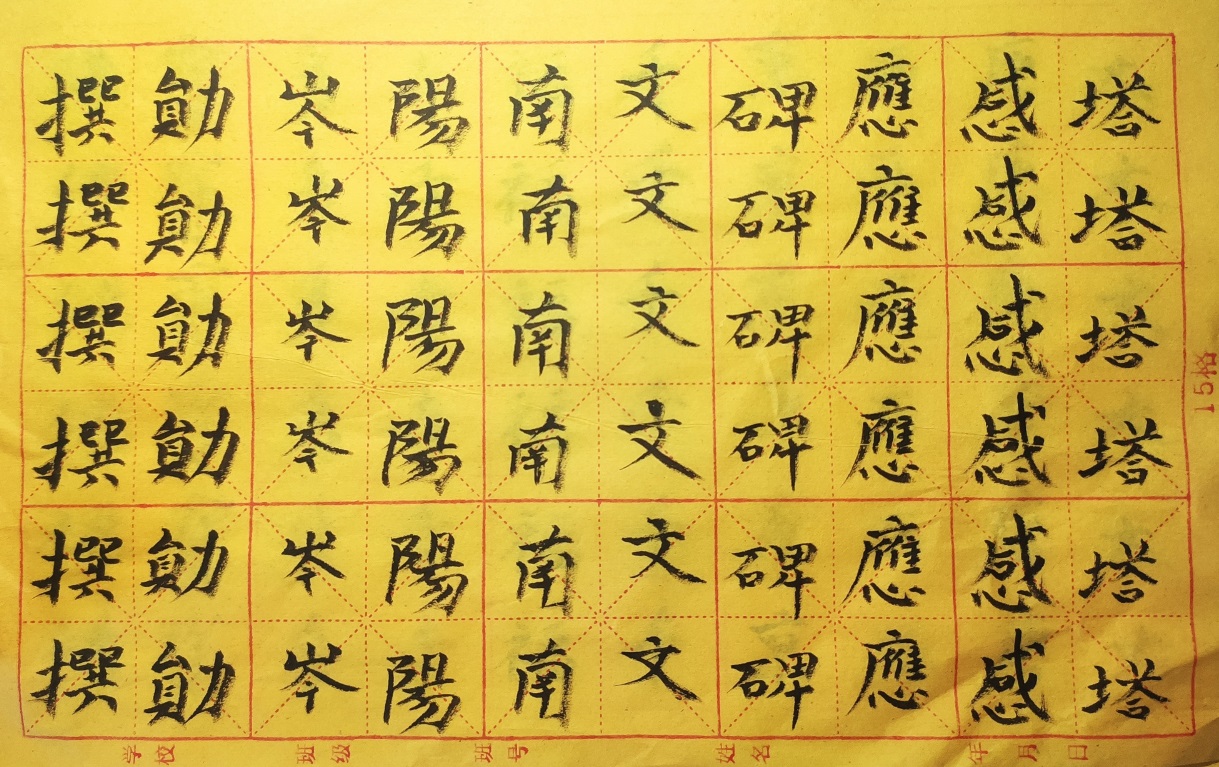 塔塔塔塔塔塔
感感感感感感
應應應應應應
碑碑碑碑碑碑
文文文文文文
南南南南南南
陽陽陽陽陽陽
岑岑岑岑岑岑
勛勛勛勛勛勛
撰撰撰撰撰撰
15格
学校 班级 班号 姓名 年 月 日